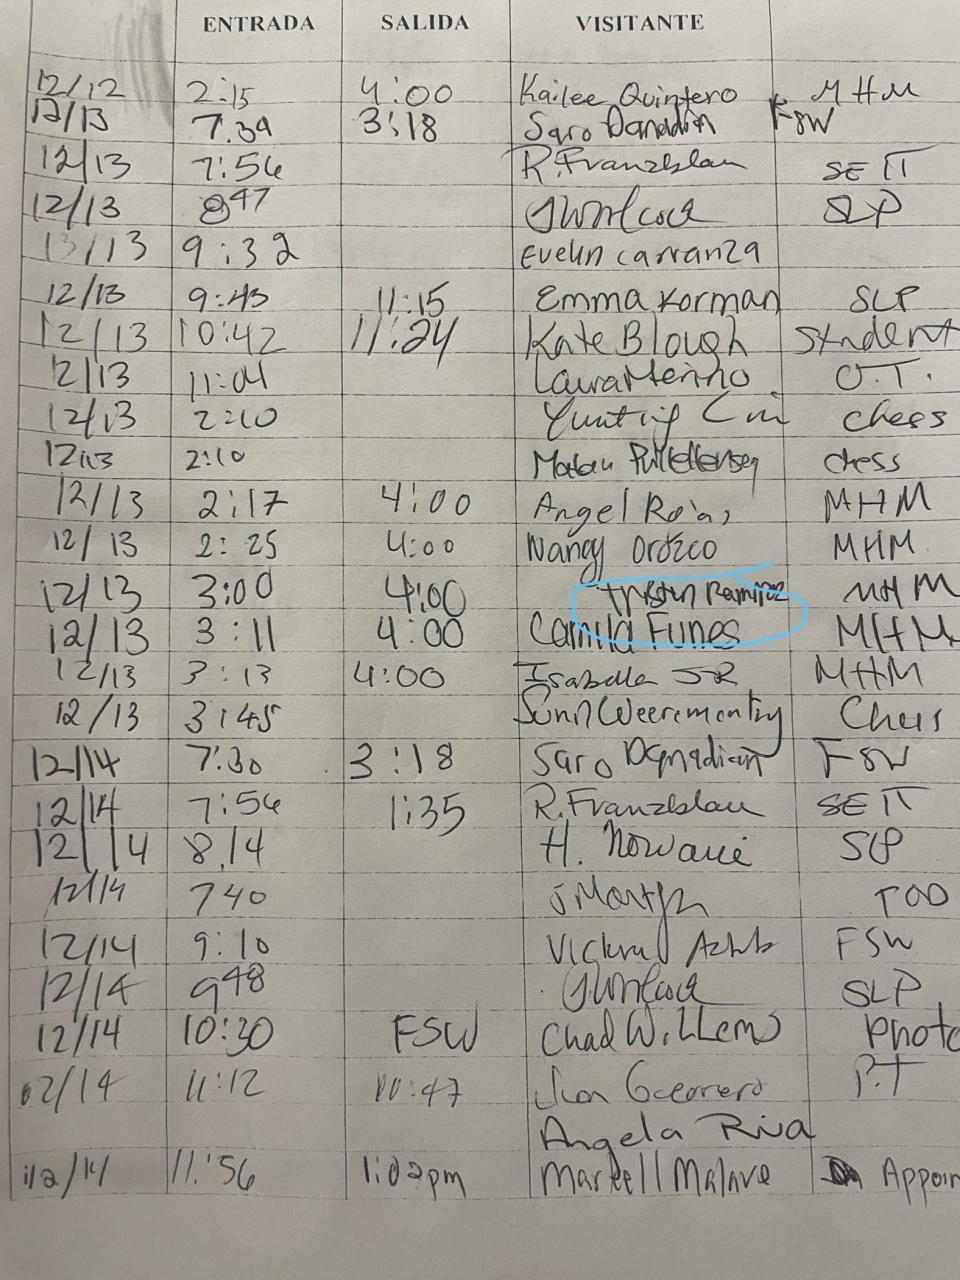 ENTRADA SALIDA VISITANTE
12/12 2:15 4:00 Kailee Quintero MHM
12/13 7:39 3:18 Saro Danadian FSW
12/13 7:56 R. Franzblau SEIT
12/13 8 47 SLP
13/13 9:32 Evelin carranza
12/13 9:43 11:15 Emma Korman SLP
12/13 10:42 11:24 Kate Blough Student
12/13 11:04 Laura Merino O.T.
12/13 2:10 chess
12/13 2:10 chess
12/13 2:17 4:00 Angel Rojas MHM
12/13 2:25 4:00 Nancy Orozco MHM
12/13 3:00 4:00 Tristen Ramirez MHM
12/13 3:11 4:00 Camila Funes MHM
12/13 3:13 4:00 Isabella SR MHM
12/13 3:45 Chess
12/14 7:30 3:18 Saro Danadian FSW
12/14 7:56 1:35 R. Franzblau SEIT
12/14 8,14 H. SLP
12/14 7 40 TOD
12/14 9:10 FSW
12/14 9 48 SLP
12/14 10:30 FSW Chad Willems Photo
02/14 11:12 Guerrero P.T
Angela Riva
12/14 11:56 1:02pm Markell Malave Appoin